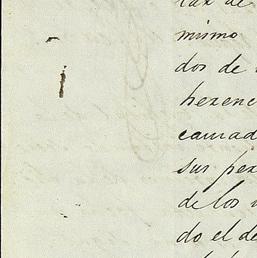 tax de
mismo
dos de
herenc
caurad
sus per
de los
do el de